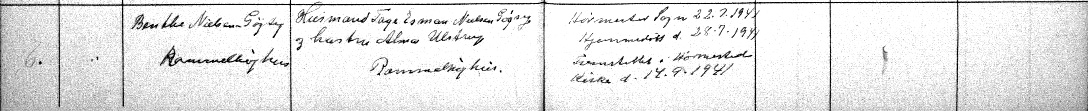 6.
Benthe Nielsen Gøjsig
Rammelhøjhus
Husmand Tage Esman Nielsen Gøjsig
og hustru Alma Ulstrup
Rammelhøjhus.
Hørmested Sogn 22.7.1941
Hjemmedøbt d. 28-7-1941
Fremstillet i Hørmested
Kirke d. 14.9.1941